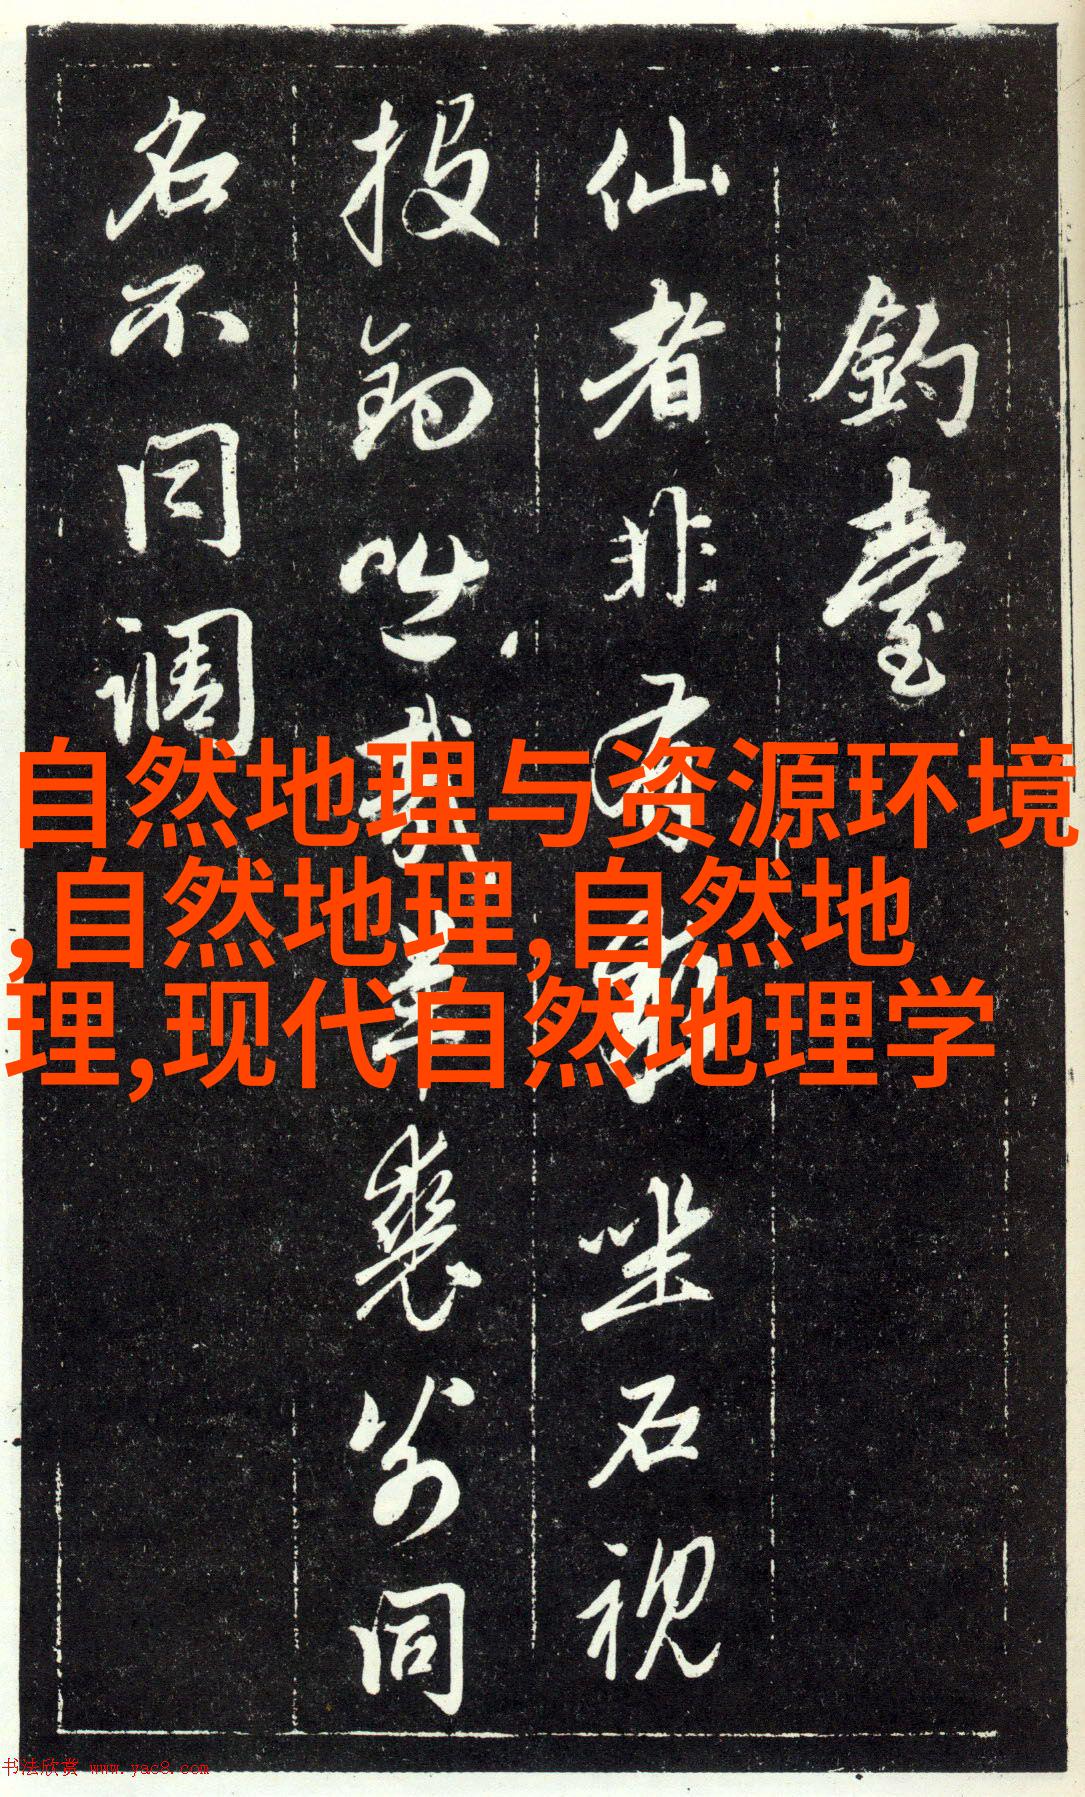 釣臺
仙者非有
坐石視
投釣
裘前同
名不同调
自然地理与资源环境
,自然地理,自然地
理,现代自然地理学
书法欣赏 www.yac8.com